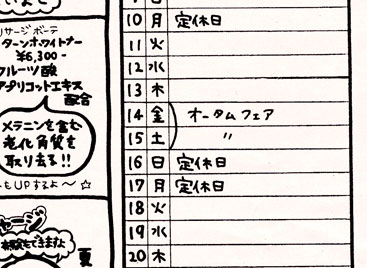 マッサージボーテ
ターンホワイトナー
¥6,300-
フルーツ酸
アプリコットエキス
配合
メラニンを含む
老化角質を
取り去る!!
もUPするよ〜☆
体験もできますよ
夏
日
10 月 定休日
11 火
12 水
13 木
14 金 オータムフェア
15 土 〃
16 日 定休日
17 月 定休日
18 火
19 水
20 木